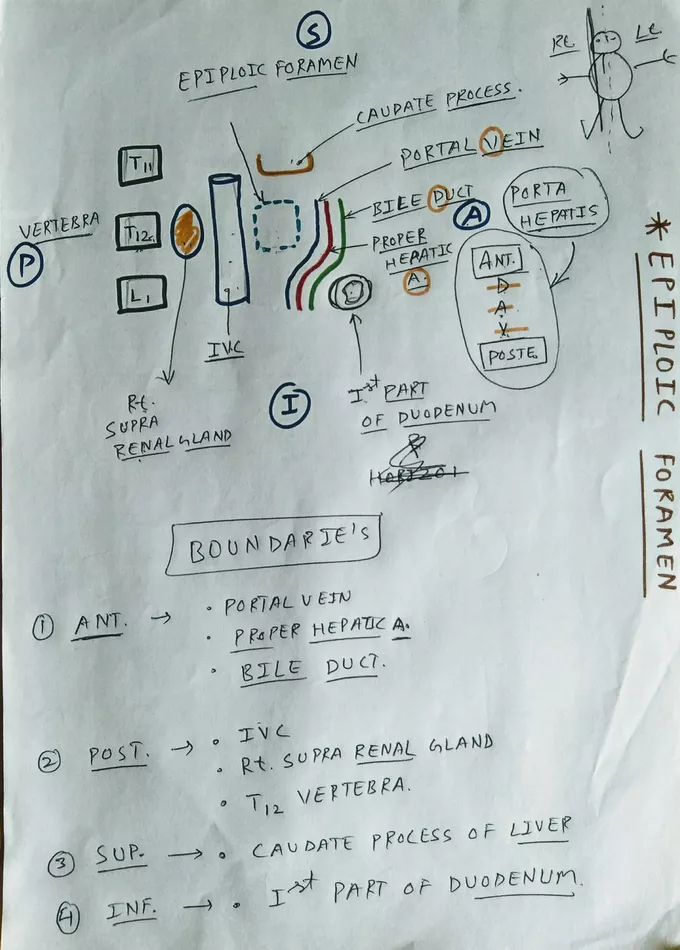 S
EPIPLOIC FORAMEN
Rt. Lt
CAUDATE PROCESS.
T11
PORTAL VEIN
VERTEBRA
T12
BILE DUCT
A
PORTA
HEPATIS
PROPER
HEPATIC
A.
P
ANT.
D
A
V
POSTE.
L1
IVC
Rt.
SUPRA
RENAL GLAND
I
Ist PART
OF DUODENUM
&
* EPIPLOIC FORAMEN
BOUNDARIE'S
① ANT. → • PORTAL VEIN
• PROPER HEPATIC A.
• BILE DUCT.
② POST. → • IVC
• Rt. SUPRA RENAL GLAND
• T12 VERTEBRA.
③ SUP. → • CAUDATE PROCESS OF LIVER
④ INF. → • Ist PART OF DUODENUM.